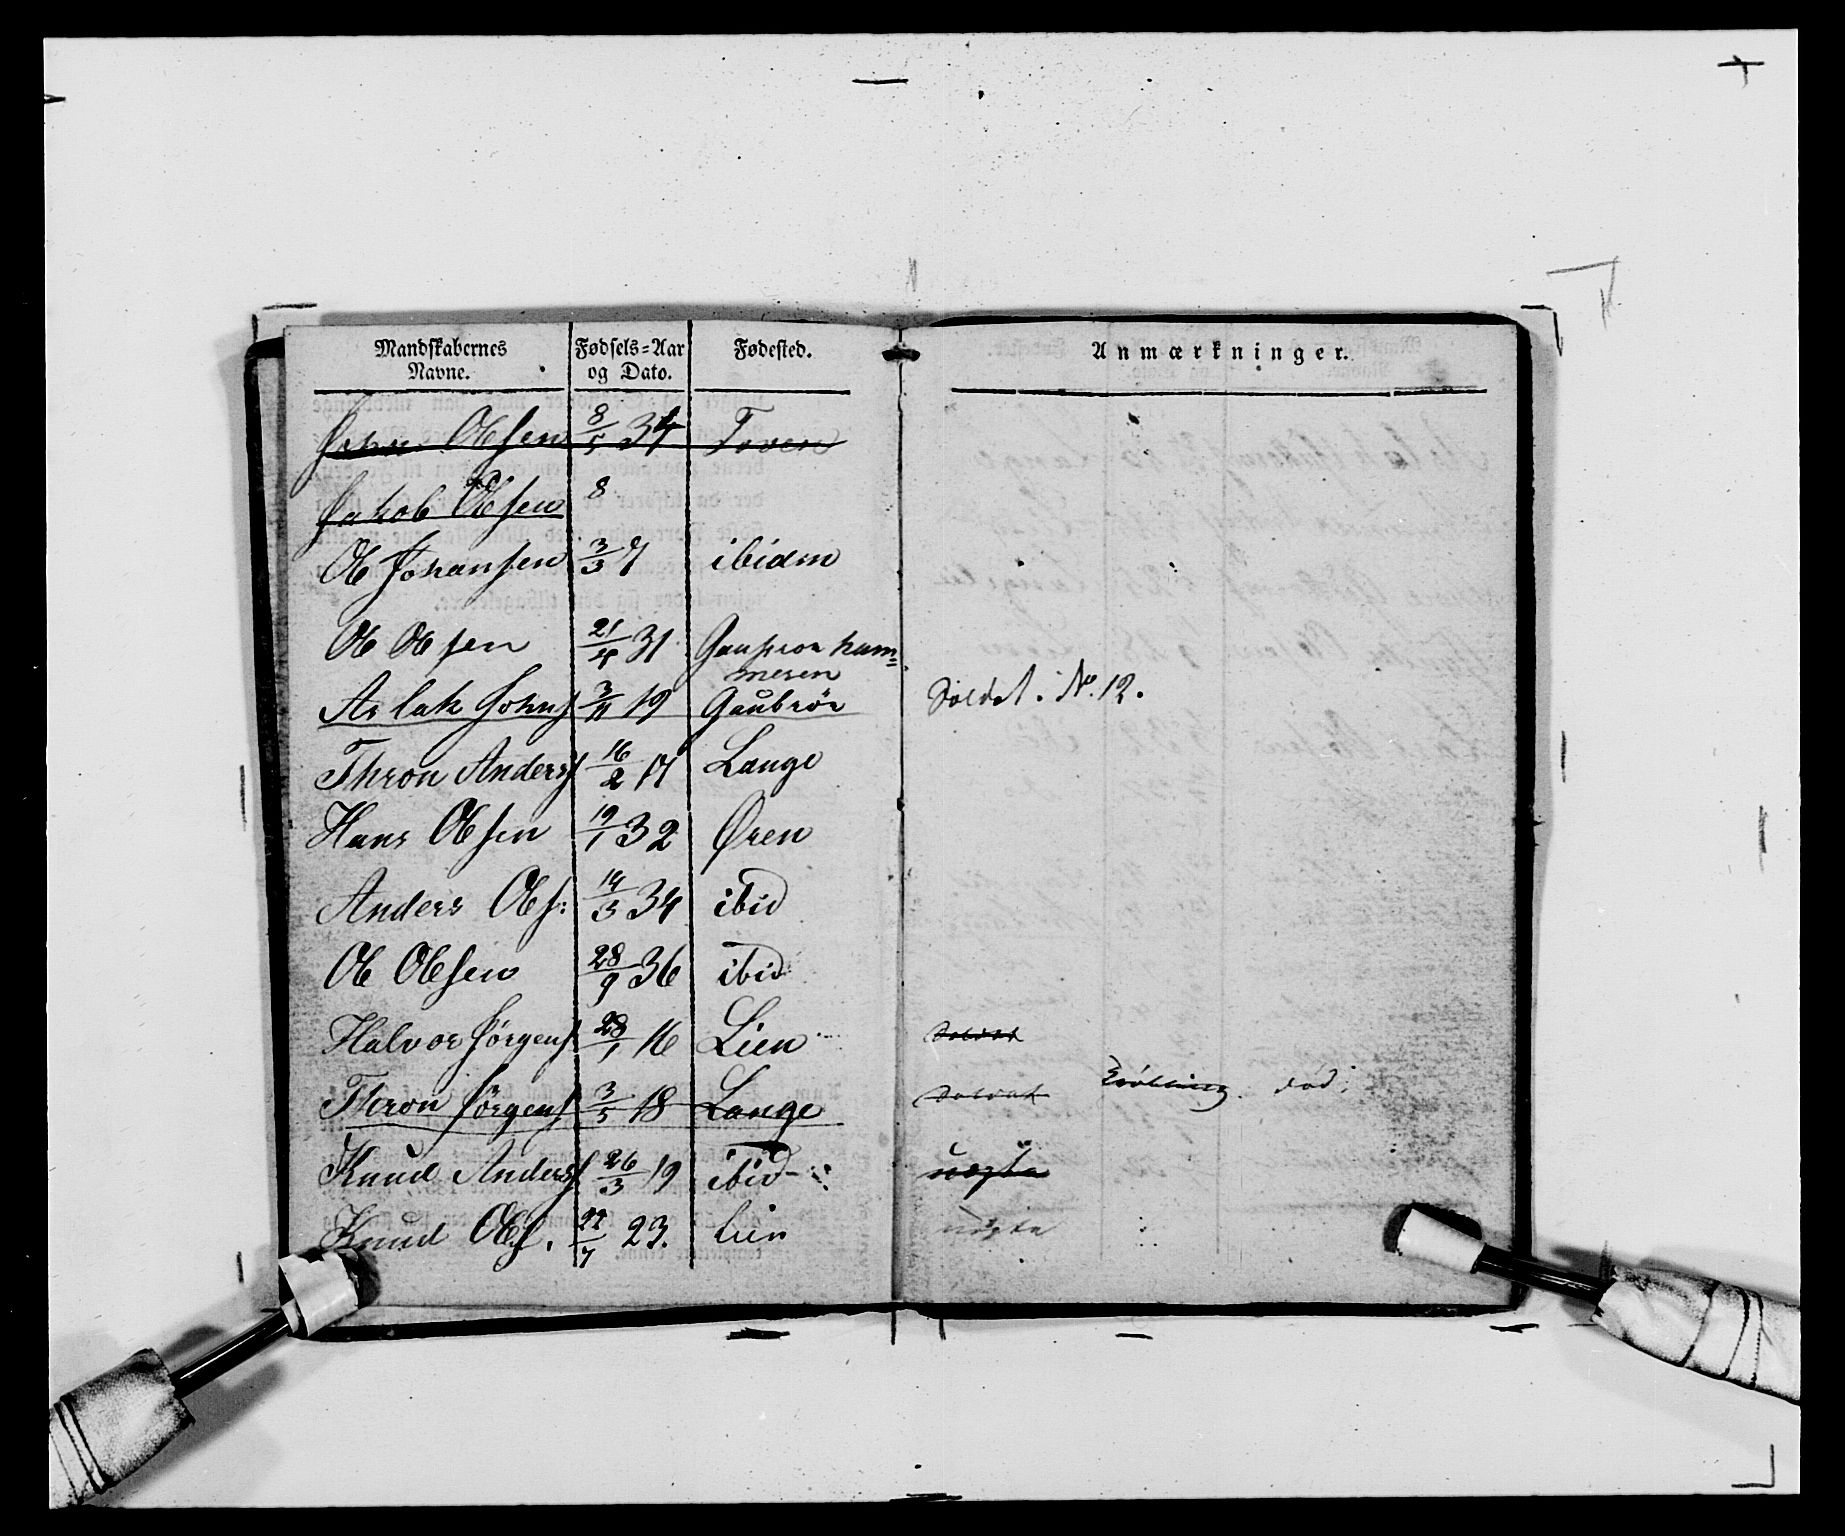 Mandskabernes Navne. Fødsels=Aar og Dato. Fødested. Anmærkninger.
John Olsen 8/5 34 Toven
Jakob Olsen 8
Ole Johansen 3/3 7 ibidm
Ole Olsen 21/4 31
meren
Aslak Johns 3/11 19 Gaubrör Soldat. No. 12.
Thron Anders 16/2 17 Lange
Hans Olsen 19/1 32 Øren
Anders Ols: 14/3 34 ibid
Ole Olsen 28/9 36 ibid
Halvor Jörgens 28/1 16 Lien Soldat
Thron Jörgens 3/5 18 Lange Soldat död
Knud Anders 26/3 19 ibid
Knud Ols. 22/7 23. Lien